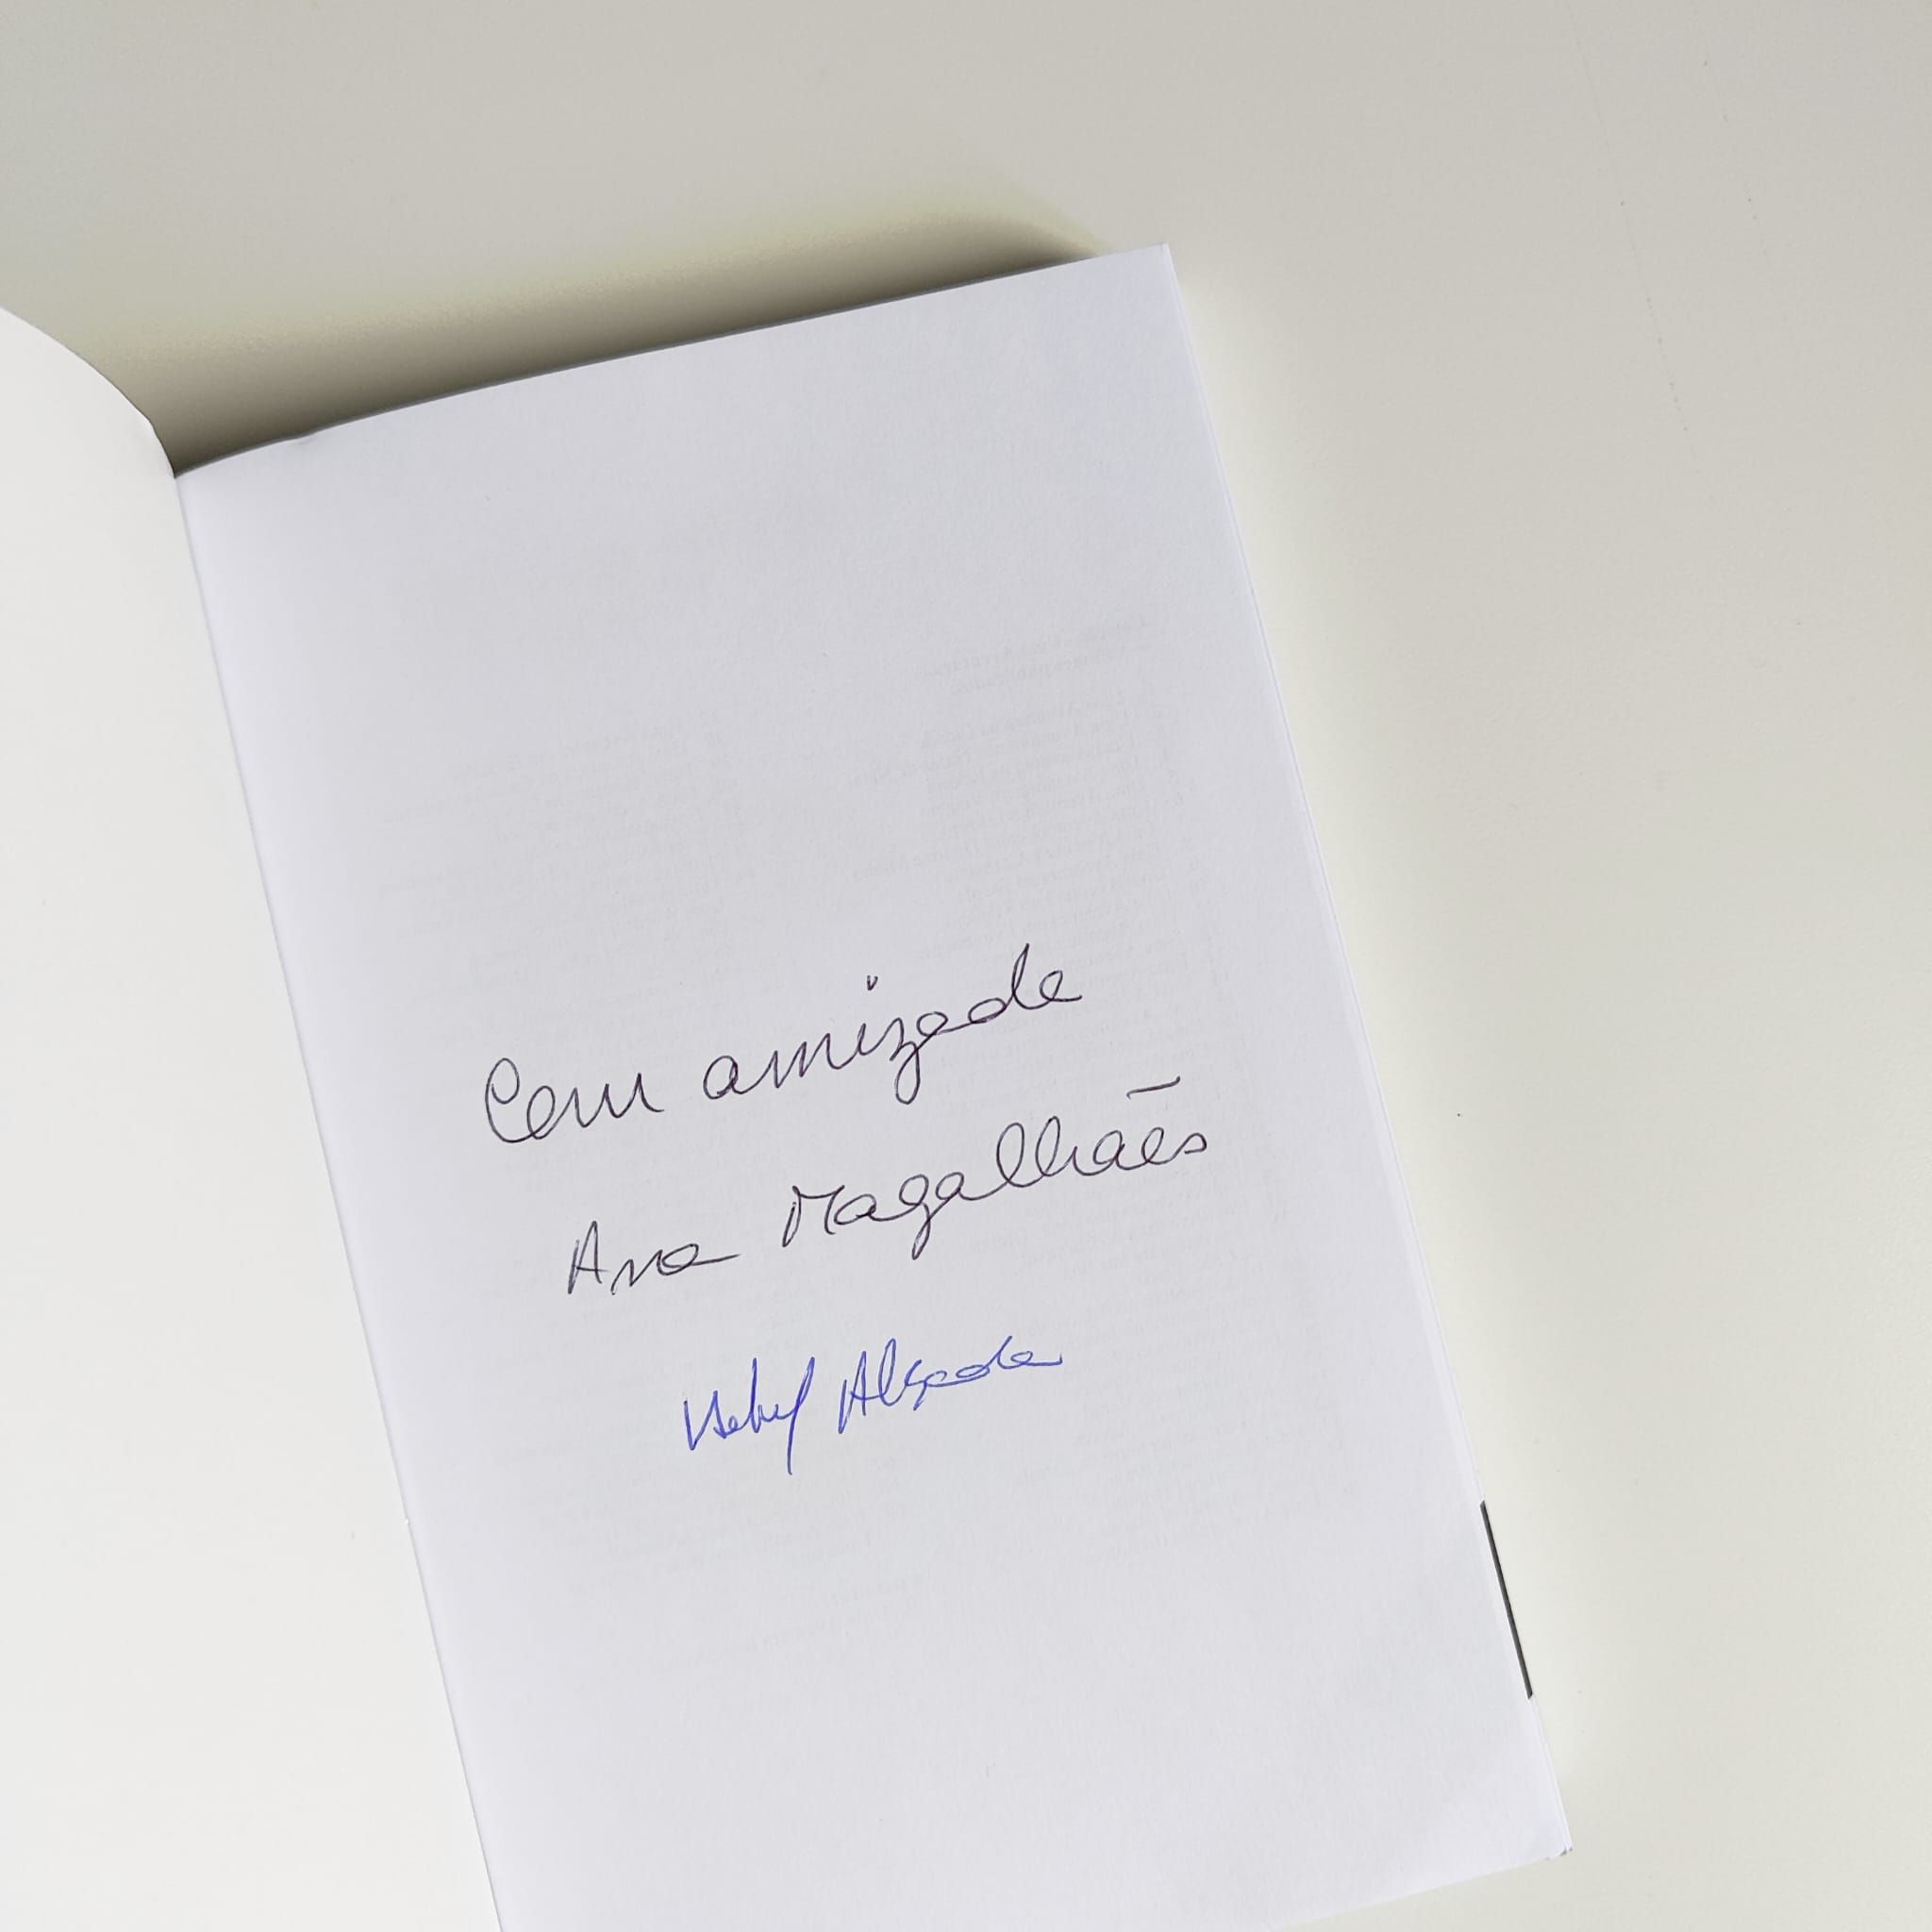 Com amizade
Ana Magalhães
Isabel Alçada